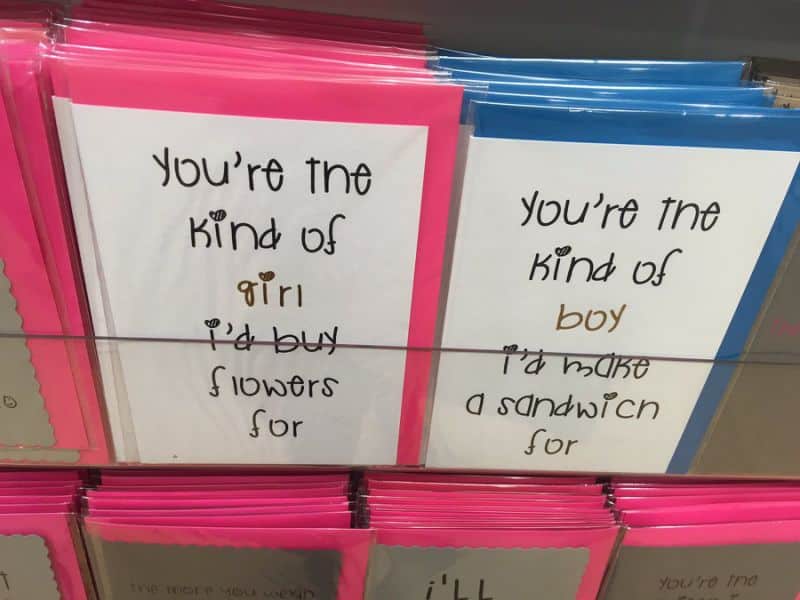 you're the
kind of
girl
i'd buy
flowers
for
you're the
kind of
boy
i'd make
a sandwich
for
the more you weigh
i'll
you're the